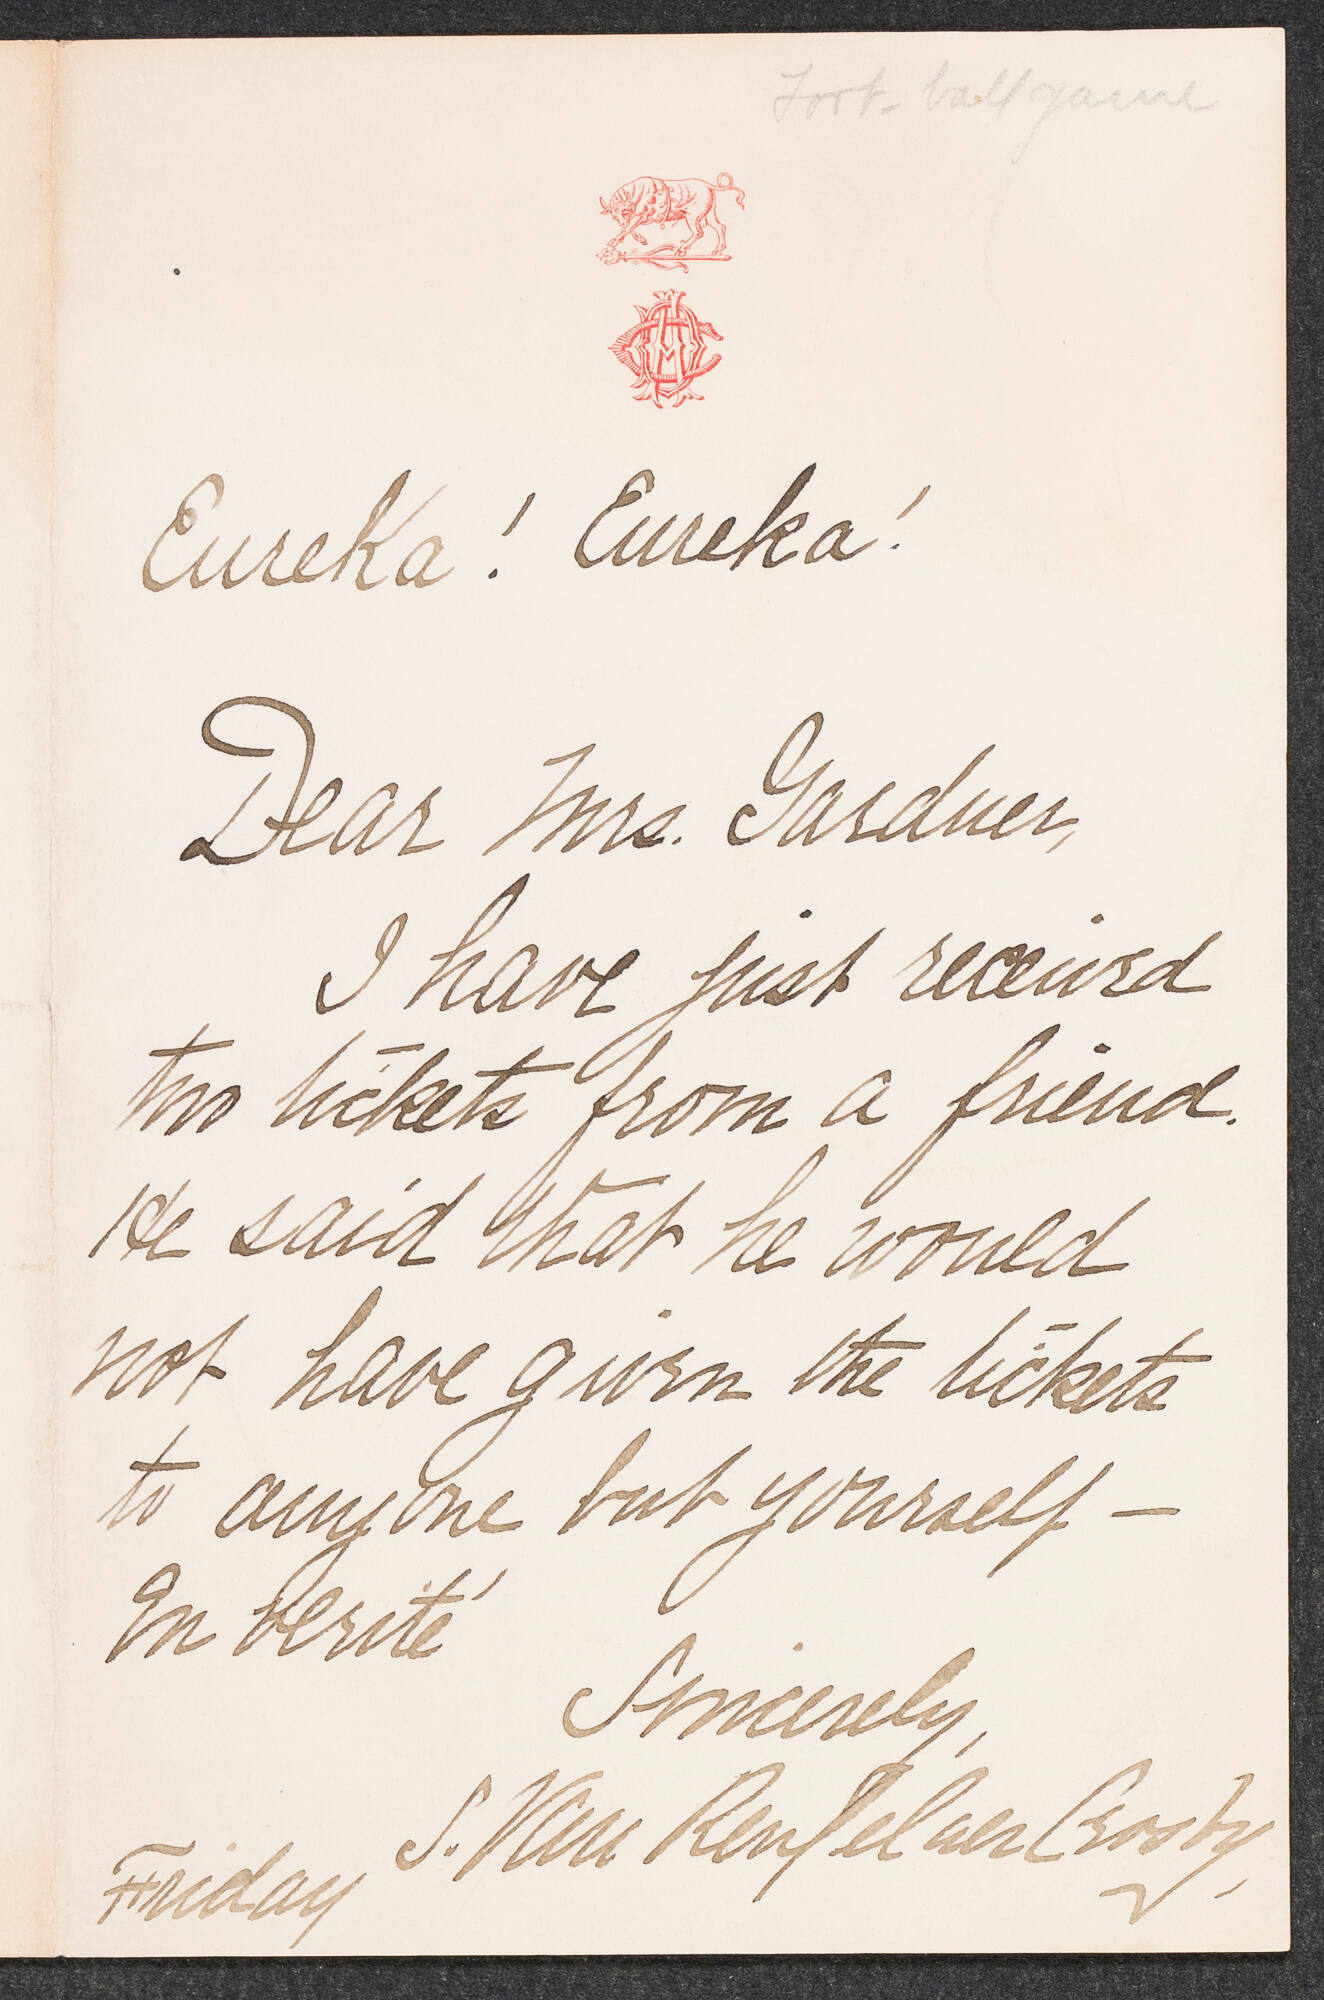 Foot-ball game
Eureka! Eureka!
Dear Mrs. Gardner,
I have just received
two tickets from a friend.
He said that he would
not have given the tickets
to anyone but yourself –
En verité
Sincerely,
S. Van Rensselaer Crosby,
Friday